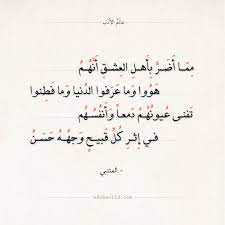 عالم الأدب
مِمّا أَضَرَّ بِأَهلِ العِشقِ أَنَّهُمُ
هَوُوا وَما عَرَفوا الدُنيا وَما فَطِنوا
تَفنى عُيونُهُمُ دَمعاً وَأَنفُسُهُم
في إِثرِ كُلِّ قَبيحٍ وَجهُهُ حَسَنُ
- المتنبي
adabworld.com